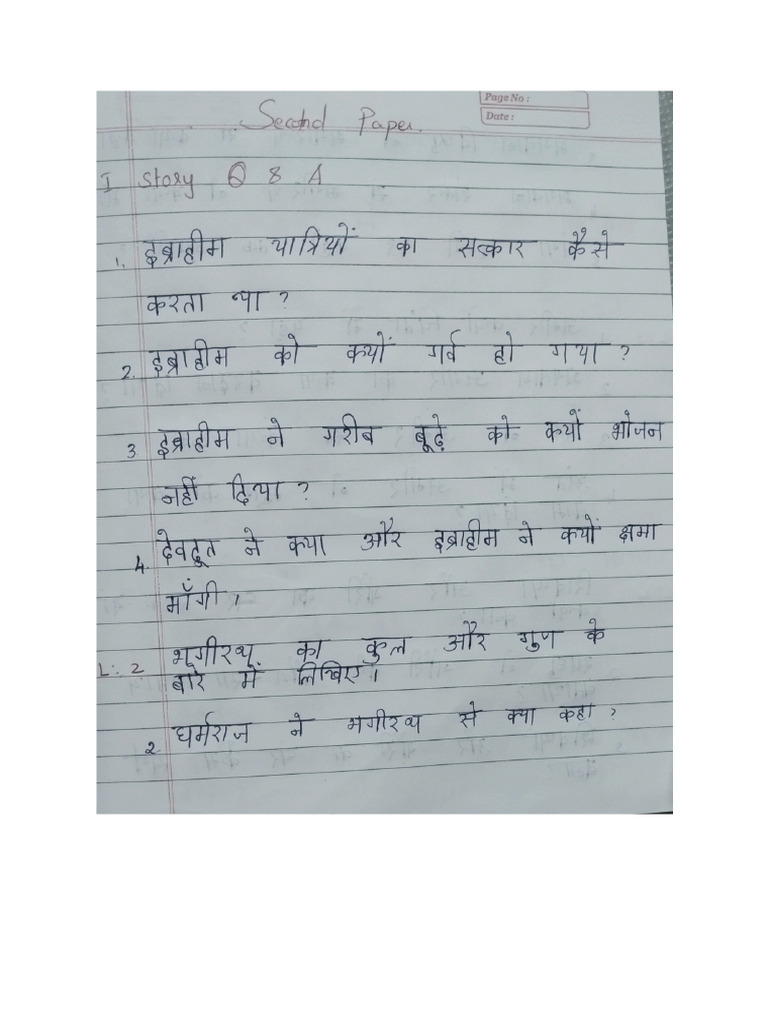 Page No :
Date :
Second Paper.
I Story Q & A
1. इब्राहीम यात्रियों का सत्कार कैसे
करता था ?
2. इब्राहीम को क्यों गर्व हो गया ?
3 इब्राहीम ने गरीब बूढ़े को क्यों भोजन
नहीं दिया ?
4. देवदूत ने क्या और इब्राहीम ने क्यों क्षमा
माँगी ।
L: 2 भगीरथ का कुल और गुण के
बारे में लिखिए ।
2 धर्मराज ने भगीरथ से क्या कहा ?